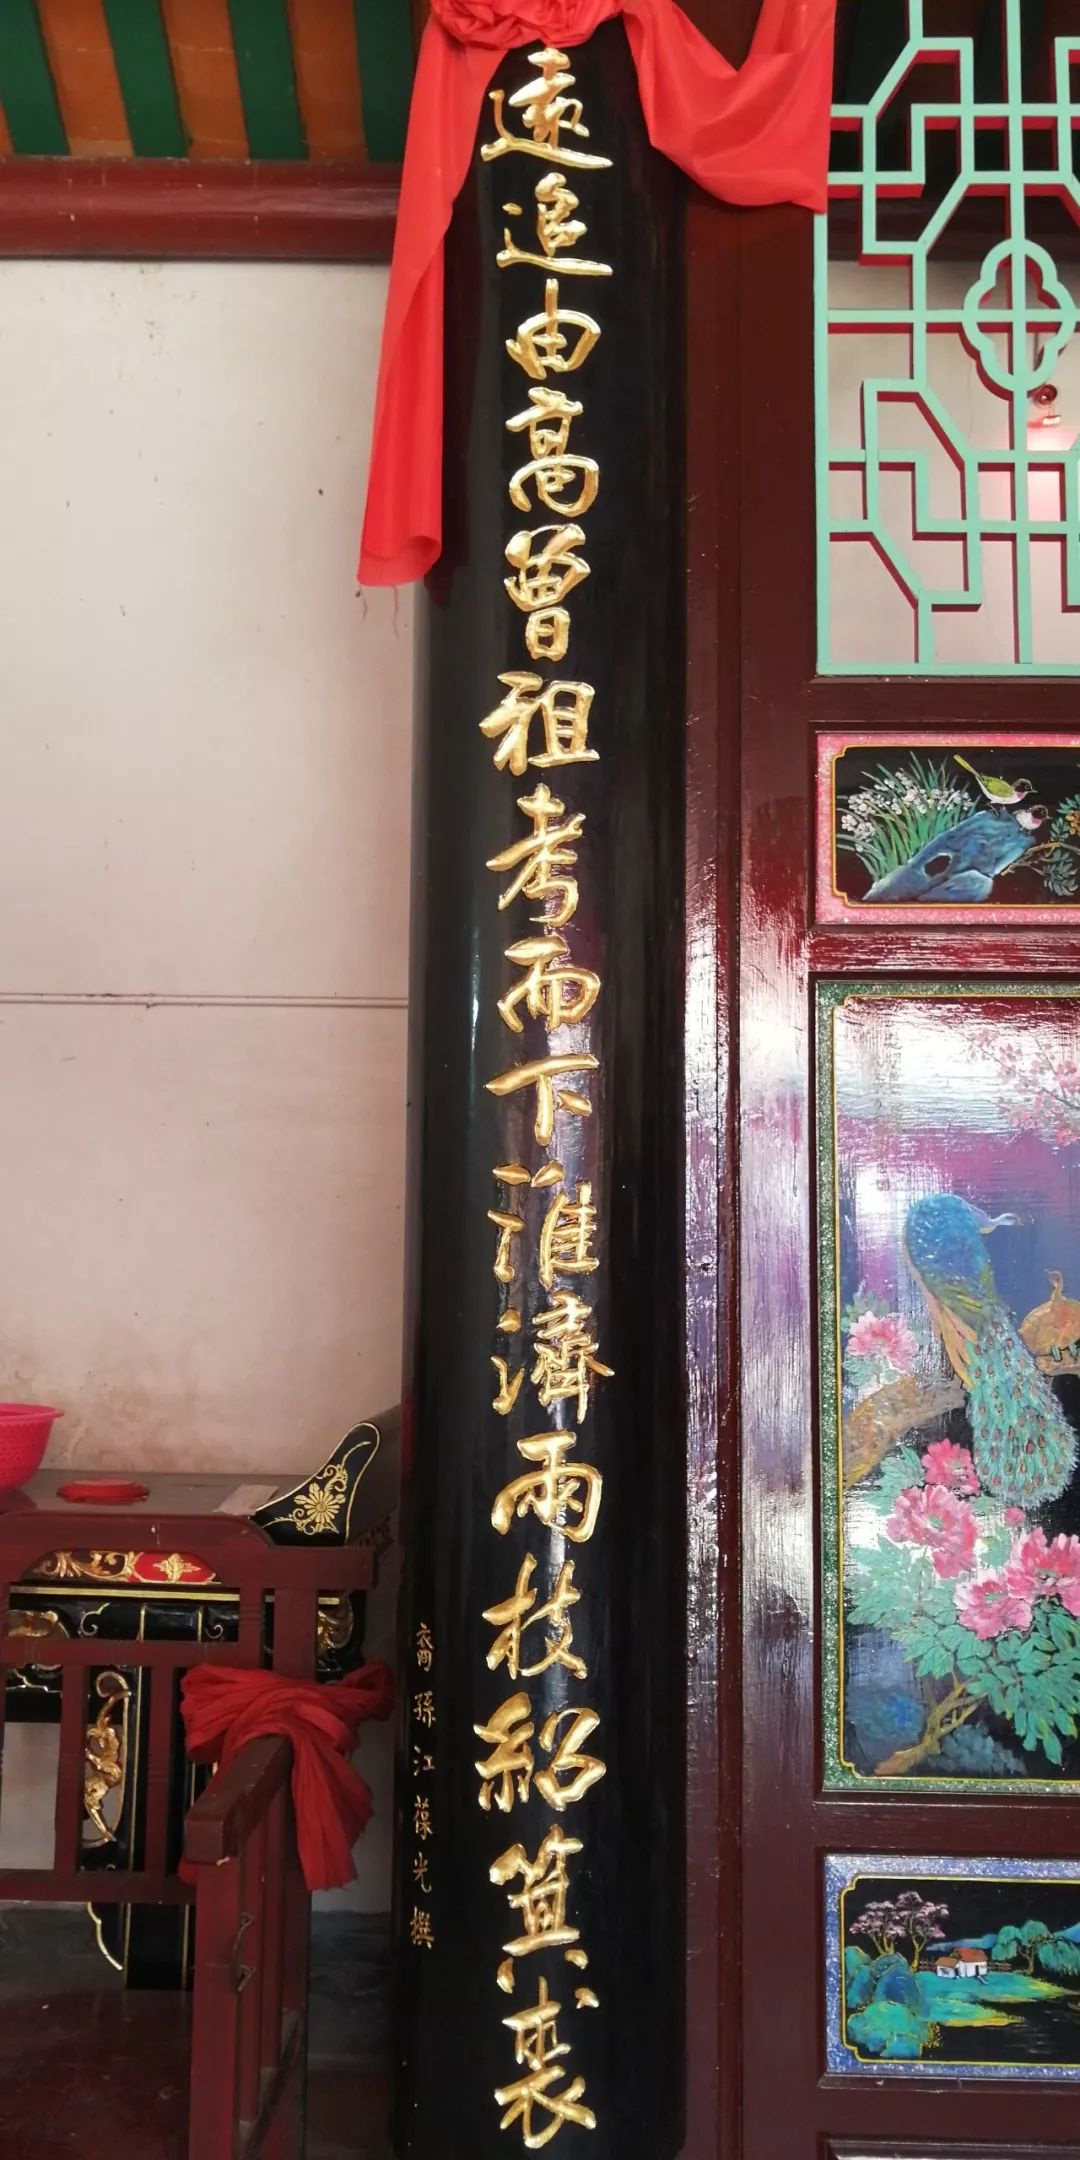 遠追由高曾祖考而下淮濟兩枝紹箕裘
裔孫江葆光撰